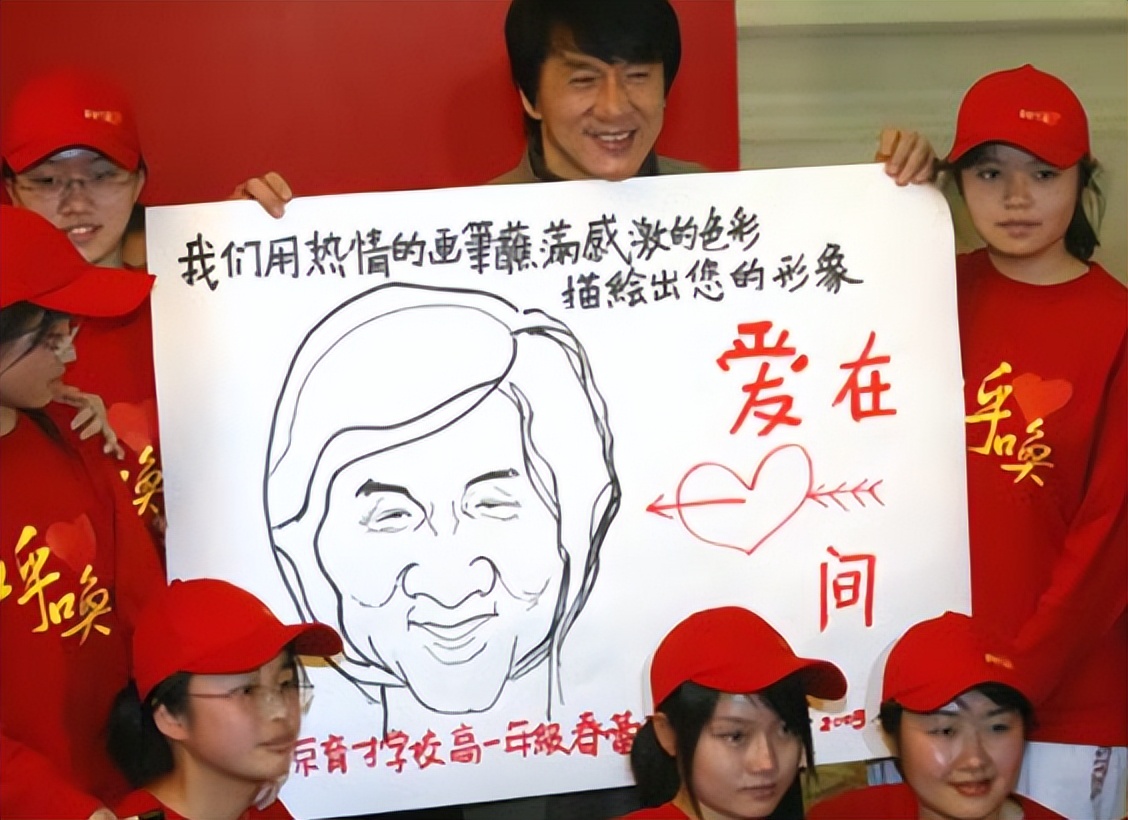 我们用热情的画筆蘸滿感激的色彩
描繪出您的形象
爱在
间
京育才学校高一年級春蕾
呼唤
唤
呼唤